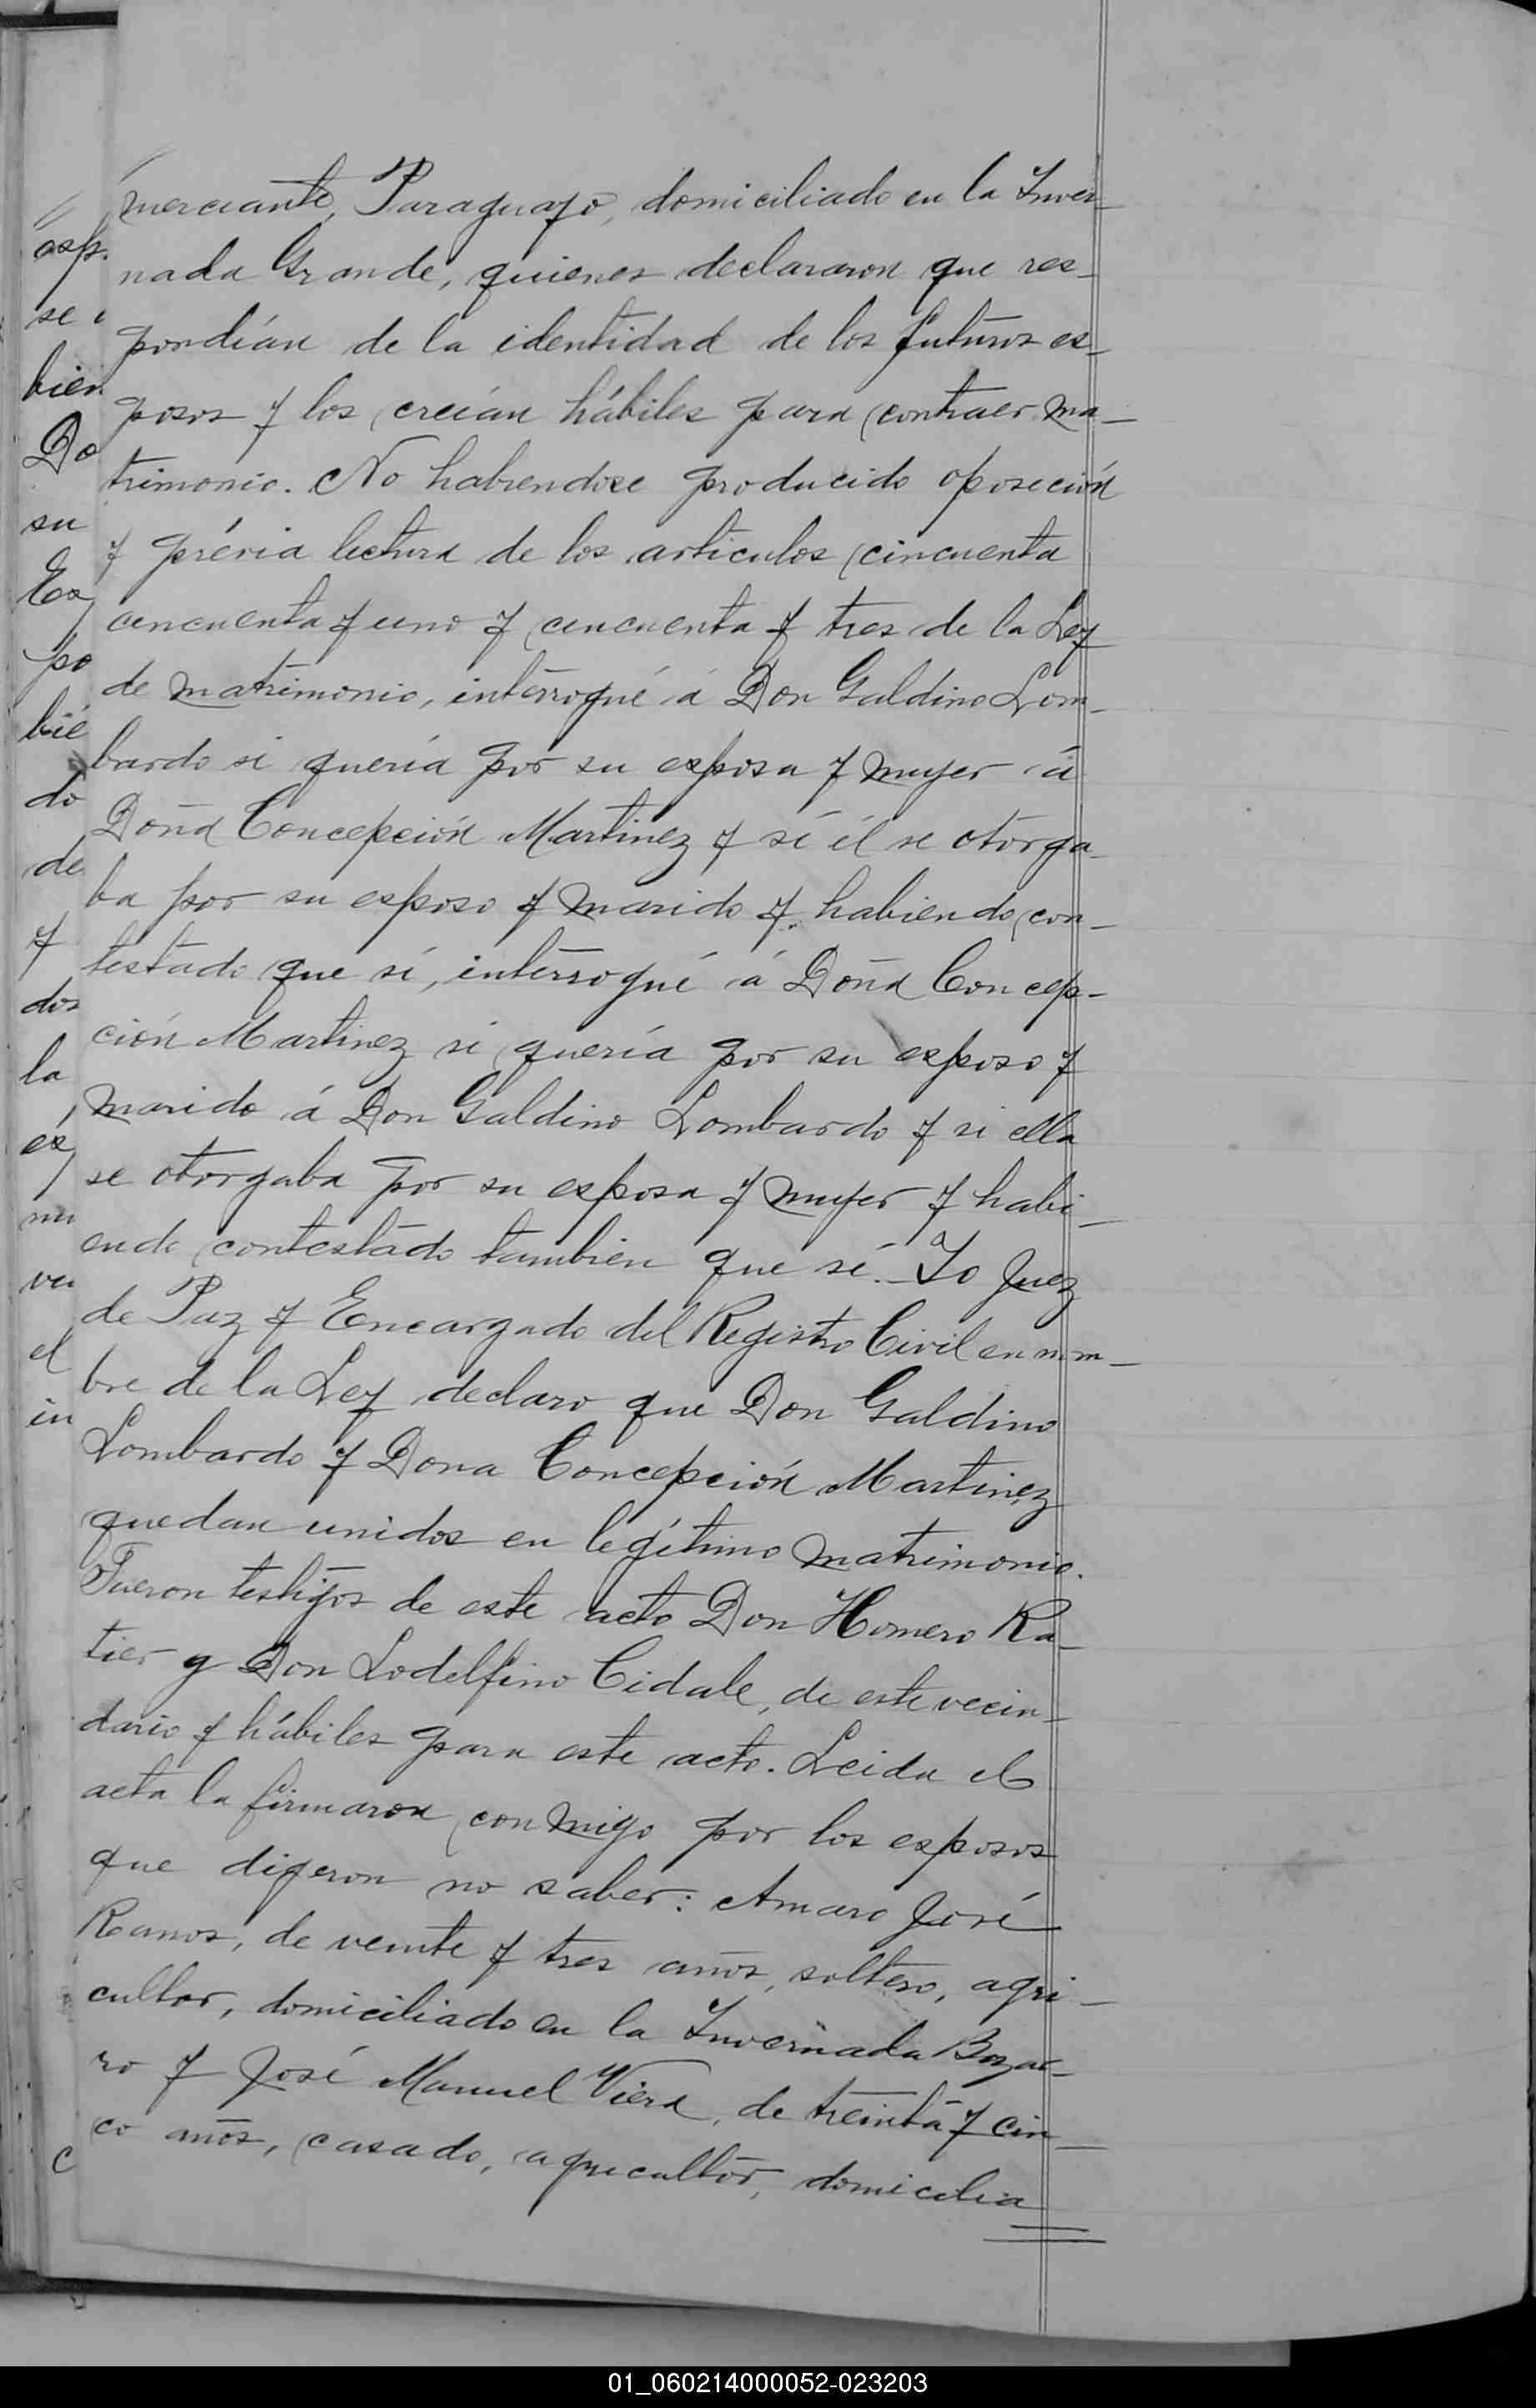 merciante, Paraguayo, domiciliado en la Inver-
nada Grande, quienes declararon que res-
pondían de la identidad de los futuros es-
posos y los creían hábiles para contraer ma-
trimonio. No habiendose producido oposición
y prévia lectura de los articulos cincuenta
cincuenta y uno y cincuenta y tres de la Ley
de matrimonio, interrogué á Don Galdino Lom-
bardo si quería por su esposa y mujer á
Doña Concepción Martinez y sí él se otorga-
ba por su esposo y marido y habiendo con-
testado que sí, interrogué á Doña Concep-
ción Martinez si quería por su esposo y
marido á Don Galdino Lombardo y si ella
se otorgaba por su esposa y mujer y habi-
endo contestado tambien que sí. Yo Juez
de Paz y Encargado del Registro Civil en nom-
bre de la Ley declaro que Don Galdino
Lombardo y Dona Concepción Martinez
quedan unidos en legítimo matrimonio.
Fueron testigos de este acto Don Homero Ra-
tier y Don Lodelfino Cidale, de este vecin-
dario y hábiles para este acto. Leida el
acta la firmaron conmigo por los esposos
que digeron no saber: Amaro José
Ramos, de veinte y tres años, soltero, agri-
cultor, domiciliado en la Invernada
ro y José Manuel Viera, de treinta y cin-
co años, casado, agricultor, domicilia
asp.
se
bien
Do
su
Es
po
bie
do
de
y
dos
la
es
nu
ve
el
in
c
01_060214000052-023203